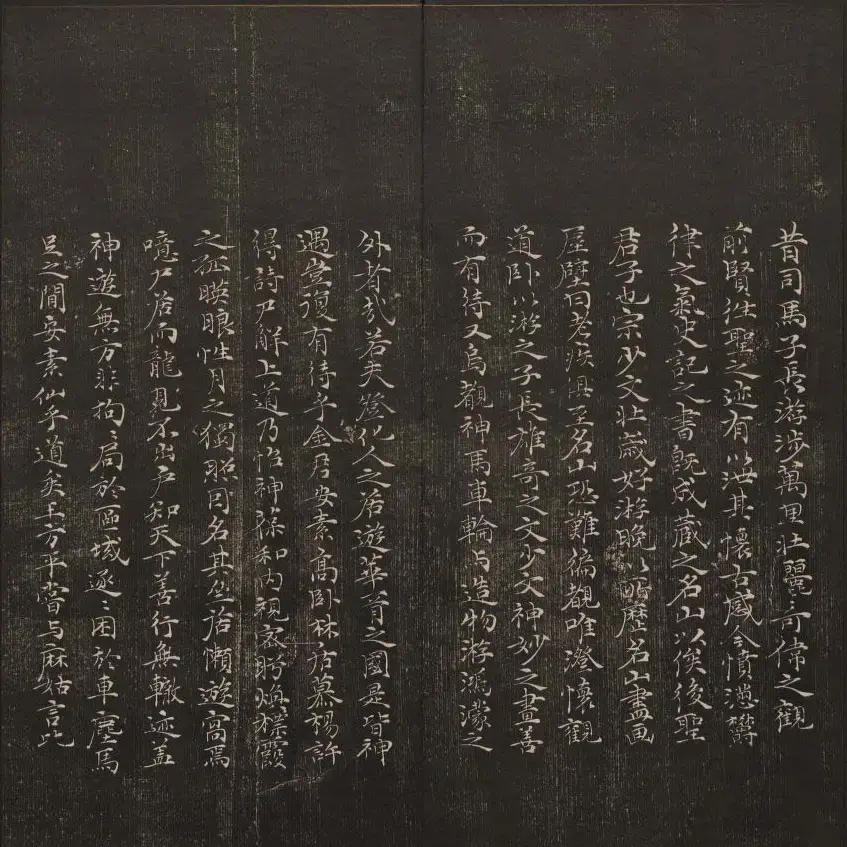 昔司馬子長游涉萬里壯麗奇偉之觀
前賢往聖之迹有以洪其懷古感今憤懣鬱
律之氣史記之書旣成蔵之名山以俟後聖
君子也宗少文壮歲好游晚以所歷名山盡画
屋壁曰老疾俱至名山恐難徧覩唯澄懷觀
道卧以游之子長雄奇之文少文神妙之畫善
而有待又烏覩神馬車輪与造物游鴻濛之
外者哉若夫登化人之居遊華胥之國是皆神
遇豈復有待乎金君安素高卧林居慕楊許
得詩尸解上道乃怡神葆和内視密盻煥襟霞
之孤暎眼性月之獨照因名其燕居懶遊窩焉
噫尸居而龍見不出户知天下善行無轍迹盖
神遊無方非拘〻局於區域逐〻困於車塵馬
足之間安素仙乎道矣王方平嘗与麻姑言比